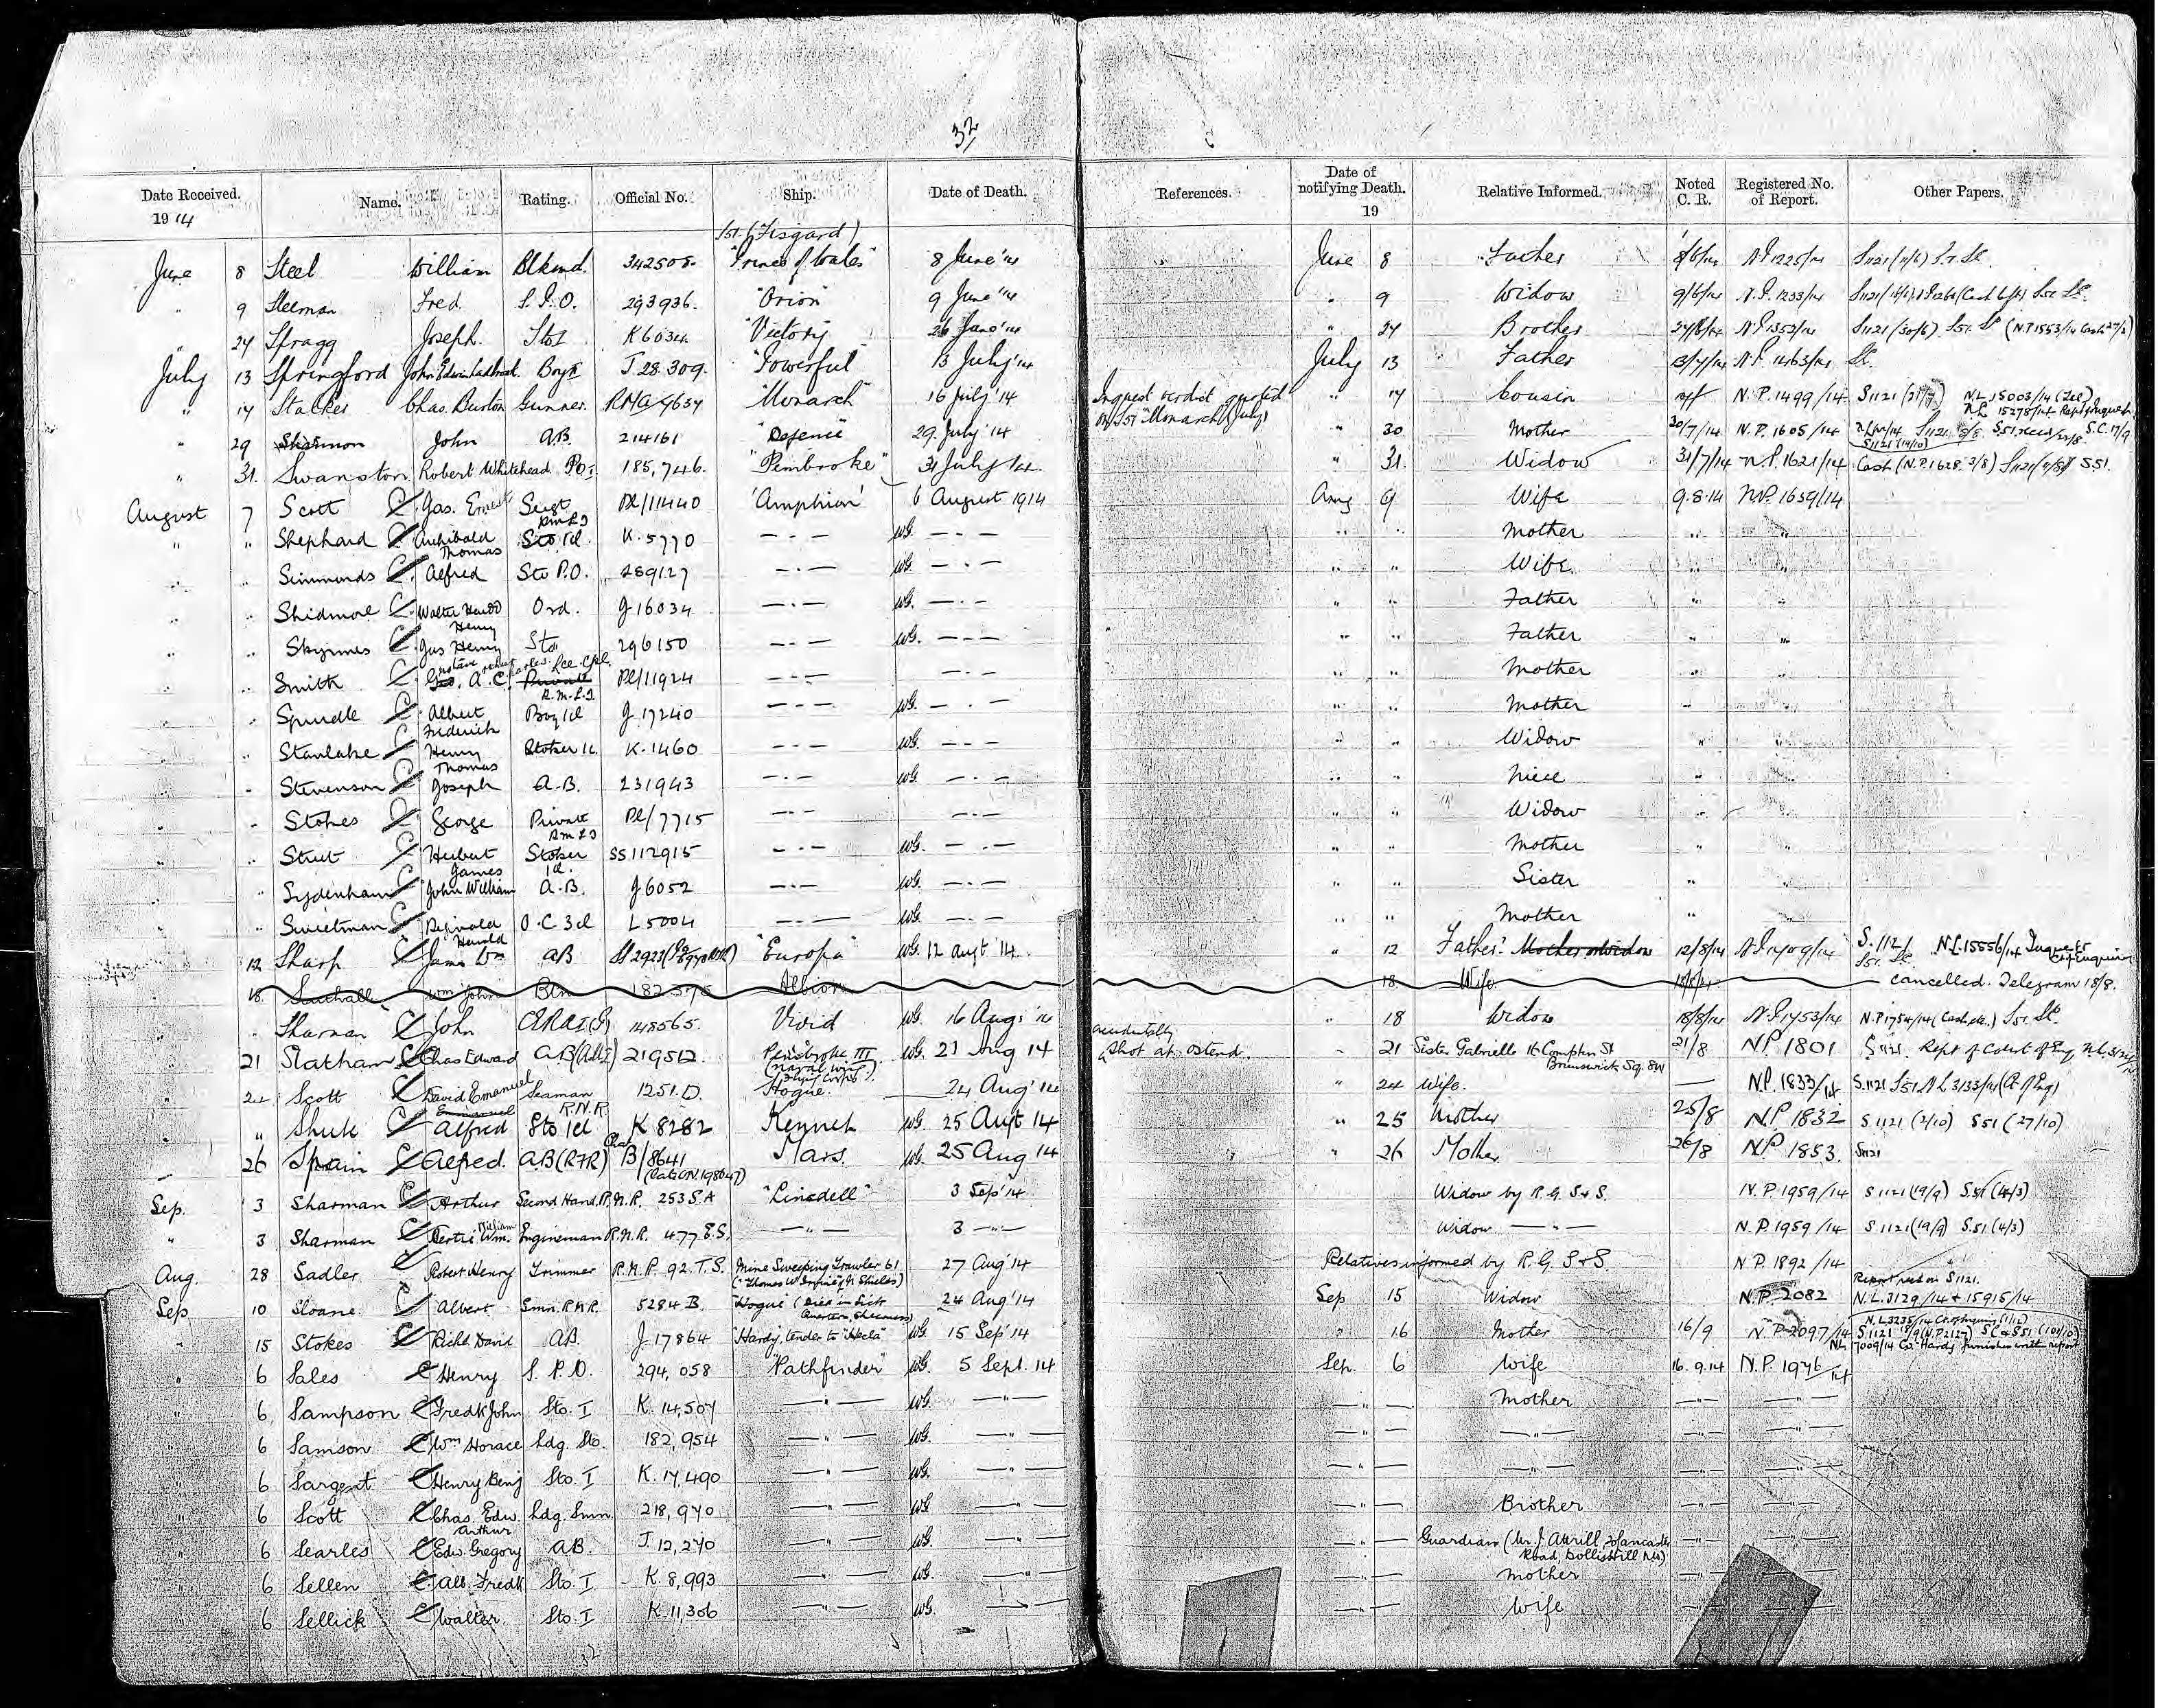 32
Date Received. Name. Rating. Official No. Ship. Date of Death. References. Date of notifying Death. Relative Informed. Noted C. R. Registered No. of Report. Other Papers.
1914 19
1st. (Fisgard)
June 8 Steel William Blksmd. 342508. "Prince of Wales" 8 June '14 June 8 Father 8/6/14 N.P. 1225/14 S1121 (11/6) S51. SC.
" 9 Fred. S.P.O. 293936. "Orion" 9 June '14 " 9 Widow 9/6/14 N.P. 1233/14
" 24 Spragg Joseph. Sto I K6034. "Victory" June '14 " 24 Brother N.P. 1352/14 S1121 (30/6). S51. SC (N.P. 1553/14 Cash
July 13 Springford John Edwin Boy II J.28.309. "Powerful" 13 July '14 July 13 Father 13/7/14 N.P. 1463/14 SC.
" 14 Stalker Chas. Burton Gunner. RMA 4634 "Monarch" 16 July '14 Inquest verdict quoted " 14 Cousin N.P. 1499/14 S1121 N.L. 15003/14 (Tel)
on S51 "Monarch" N.L. 15278/14 Rept Inquest
" 29 John AB. 214161 "Defence" 29. July '14 " 30 Mother 30/7/14 N.P. 1605/14 S1121. S.C. 17/9
S1121 (19/10)
" 31. Swanston Robert Whitehead PO I 185,746. "Pembroke" 31 July 14. " 31. Widow 31/7/14 N.P. 1621/14 Cash (N.P. 1628. 3/8) S1121 S51.
August 7 Scott C Jas. Ernest Sergt RMLI Pl/11440 'Amphion' 6 August 1914 Aug 9 Wife 9.8.14 N.P. 1659/14
" " Shephard C Archibald Thomas Sto 1cl. K.5770 — . — WG. — . — " " Mother " "
" " Simmonds C Alfred Sto P.O. 289127 — . — WG. — . — " " Wife. " "
" " Skidmore C Walter Ord. J16034 — . — WG. — . — " " Father " "
Henry
" " Skyrmes C Jas Henry Sto 296150 — . — WG. — . — " " Father " "
" " Smith C Geo. A.C. Lce. Cpl. Private R.M.L.I. Pl/11924 — . — — . — " " Mother " "
" " Spindle C Albert Frederick Boy 1cl J17240 — . — WG. — . — " " Mother " "
" " Stanlake C Henry Thomas Stoker 1c. K.1460 — . — WG. — . — " " Widow " "
" " Stevenson C Joseph A.B. 231943 — . — WG. — . — " " Niece " "
" " Stokes C George Private RMLI Pl/7715 — . — — . — " " Widow " "
" " Street C Herbert James Stoker 1cl. SS.112915 — . — WG. — . — " " Mother " "
" " Sydenham C John William A.B. J6052 — . — WG. — . — " " Sister "
" " Sweetman C Reginald Harold O.C 3cl L5004 — . — WG. — . — " " Mother "
12 Sharp C James Wm AB "Europa" WG. 12 Augt '14. " 12 Father. Mother or Widow 12/8/14 N.P. 1709/14 S.1121 N.L. 15556/14 Inquest
S51. SC.
18. Southall Wm John Albion 18 Wife Cancelled. Telegram 18/8.
" Sharman C John ERA I (G) 148565. Vivid WG. 16 Aug: '14 " 18 Widow 18/8/14 N.P. 1753/14 N.P. 1754/14 (Cash etc.) S51. SC.
21 Statham C Chas Edward AB 219512. Pembroke III WG. 21 Aug 14 accidentally Shot at Ostend. " 21 Sister Gabrielle 16 Compton St 21/8 NP 1801 S1121. Rept of Court of Enq.
(naval wing Flying Corps). Brunswick Sq.
24 Scott C David Emanuel Seaman R.N.R. 1251.D. Hogue. 24 Aug '14 " 24 Wife. — N.P. 1833/14 S.1121 S51 N.L 3133/14 (Ct of Enq)
" C Alfred Sto 1cl K 8282 Kennet WG. 25 Augt 14 " 25 Mother 25/8 NP 1832 S1121 (2/10) S51 (27/10)
26 Spain C Alfred. AB (RFR) Chat B/8641 Mars. WG. 25 Aug 14 " 26 Mother 26/8 NP 1853. S1121
(late ON. 198647)
Sep. 3 Sharman C Arthur Second Hand. R.N.R. 253 S.A "Linsdell" 3 Sep '14 Widow by R.G. S & S. N.P. 1959/14 S1121 (19/9) S.51 (4/3)
" 3 Sharman C Bertie William Wm. Engineman R.N.R. 477 E.S. — " — 3 — " — Widow — " — N.P. 1959/14 S1121 (19/9) S.51 (4/3)
Aug. 28 Sadler C Robert Henry Trimmer R.N.R. 92. T.S. Mine Sweeping Trawler 61 27 Aug '14 Relatives informed by R.G. S & S. N.P. 1892/14
("Thomas W Irvine" of N Shields)
Sep 10 Sloane C Albert Smn. R.N.R. 5284 B. "Hogue" (Died in Sick Quarters, Sheerness) 24 Aug '14 Sep 15 Widow N.P. 2082 Report recd on S1121.
N.L. 3129/14 + 15915/14
" 15 Stokes C Richd. David AB. J.17864 "Hardy, tender to "Hecla" WG. 15 Sep '14 " 16 Mother 16/9 N.P. 2097/14
" 6 Sales C Henry S.P.O. 294,058 "Pathfinder" WG. 5 Sept. 14 Sep. 6 Wife 16.9.14 N.P. 1976/14
" 6 Sampson C Fredk John Sto. I K. 14,507 — " — WG. — " — — " — Mother — " — — " —
" 6 Samson C Wm Horace Ldg. Sto. 182,954 — " — WG. — " — — " — — " — — " — — " —
" 6 Sargent C Henry Benj Sto. I K. 17,490 — " — WG. — " — — " — — " — — " — — " —
" 6 Scott C Chas. Edw. Arthur Ldg. Smn. 218,970 — " — WG — " — — " — Brother — " — — " —
" 6 Searles C Edw. Gregory AB. J. 12,270 — " — WG. — " — — " — Guardian (Mr. J. Attrill, Lancaster — " — — " —
Road, Dollis Hill NW)
" 6 Sellen C Alb. Fredk Sto. I K. 8,993 — " — WG. — " — — " — Mother
" 6 Sellick C Walter. Sto. I K. 11,306 — " — WG. — " — — " — Wife
32